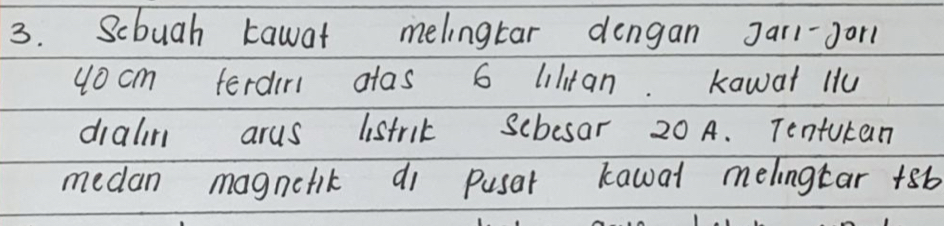 3. Sebuah kawat melingkar dengan Jari-Jari
40 cm terdiri atas 6 lilitan. kawat itu
dialiri arus listrik sebesar 20 A. Tentukan
medan magnetik di pusat kawat melingkar tsb